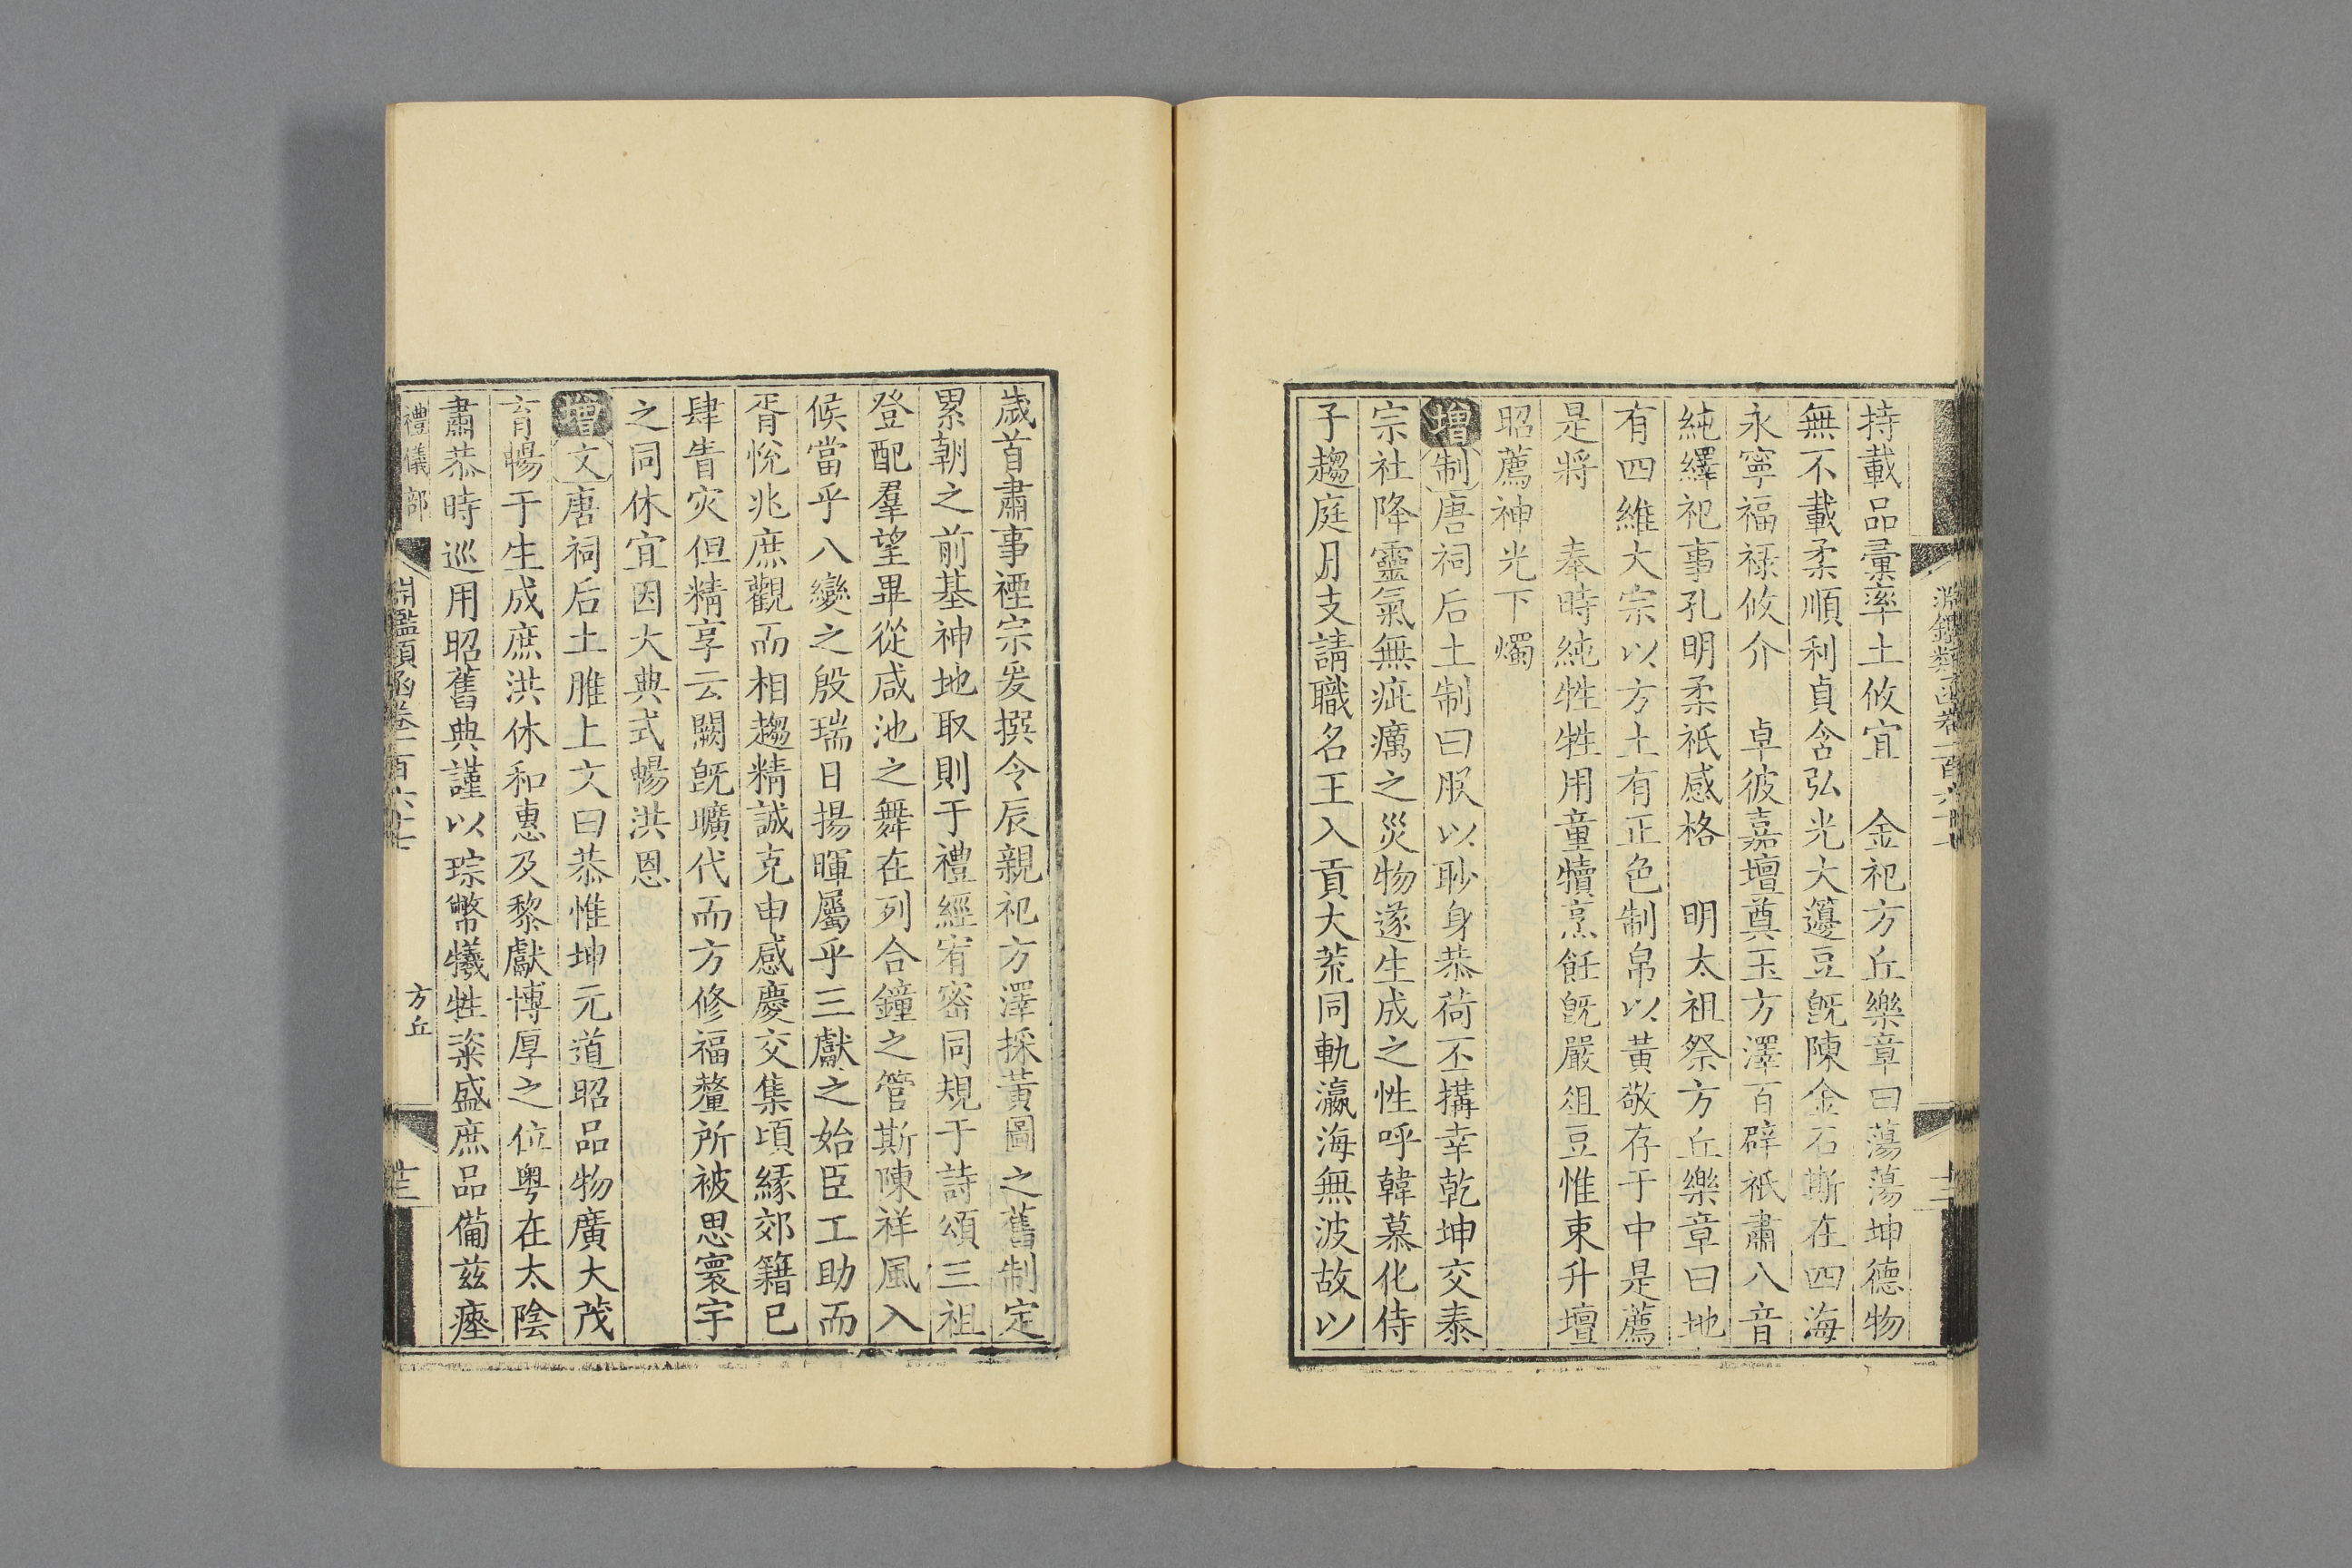 持載品彙率土攸宜　金祀方丘樂章曰蕩蕩坤德物
無不載柔順利貞含弘光大籩豆旣陳金石斯在四海
永寧福祿攸介　卓彼嘉壇奠玉方澤百辟祇肅八音
純繹祀事孔明柔祇感格　明太祖祭方丘樂章曰地
有四維大宗以方土有正色制帛以黃敬存于中是薦
是將　奉時純牲牲用童犢烹飪旣嚴俎豆惟東升壇
昭薦神光下燭
增制唐祠后土制曰朕以眇身恭荷丕搆幸乾坤交泰
宗社降靈氣無疵癘之災物遂生成之性呼韓慕化侍
子趨庭月支請職名王入貢大荒同軌瀛海無波故以
歲首肅事禋宗爰撰令辰親祀方澤採黃圖之舊制定
累朝之前基神地取則于禮經宥密同規于詩頌三祖
登配羣望畢從咸池之舞在列合鐘之管斯陳祥風入
候當乎八變之殷瑞日揚暉屬乎三獻之始臣工助而
胥悅兆庶觀而相趨精誠克申感慶交集頃緣郊籍已
肆眚灾但精享云闕旣曠代而方修福釐所被思寰宇
之同休宜因大典式暢洪恩
增文唐祠后土脽上文曰恭惟坤元道昭品物廣大茂
育暢于生成庶洪休和惠及黎獻博厚之位粤在太陰
肅恭時巡用昭舊典謹以琮幣犧牲粢盛庶品備兹瘞
禮儀部
淵鑑類函卷一百六十七
方丘